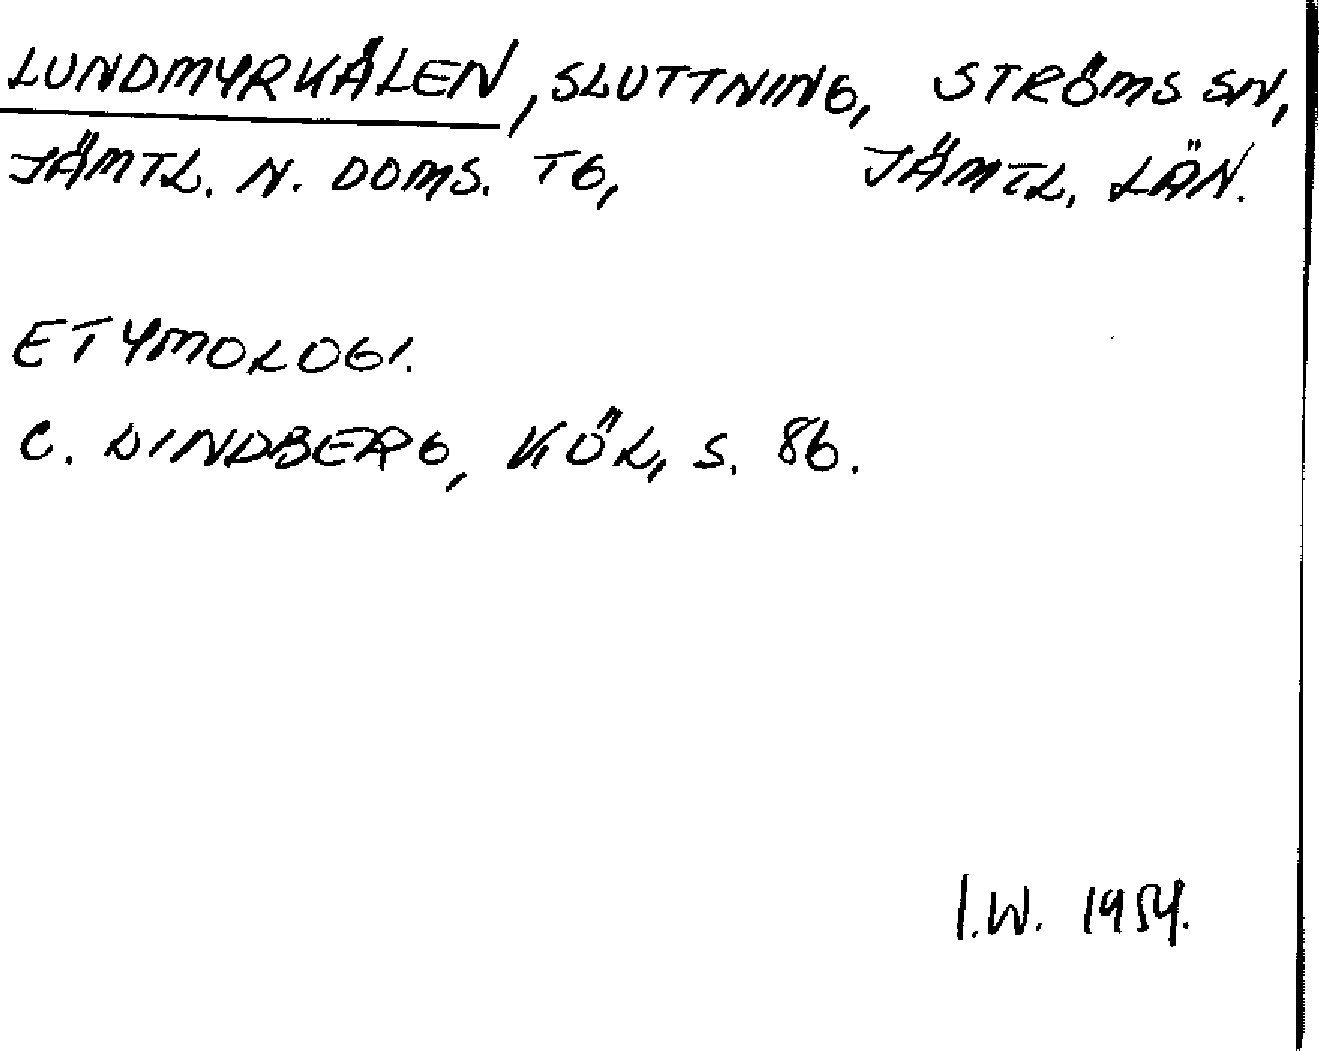 LUNDMYRKÅLEN, SLUTTNING, STRÖMS SN,
JÄMTL. N. DOMS. TG, JÄMTL. LÄN.
ETYMOLOGI.
C. LINDBERG, KÖL, S. 86.
I.W. 1954.